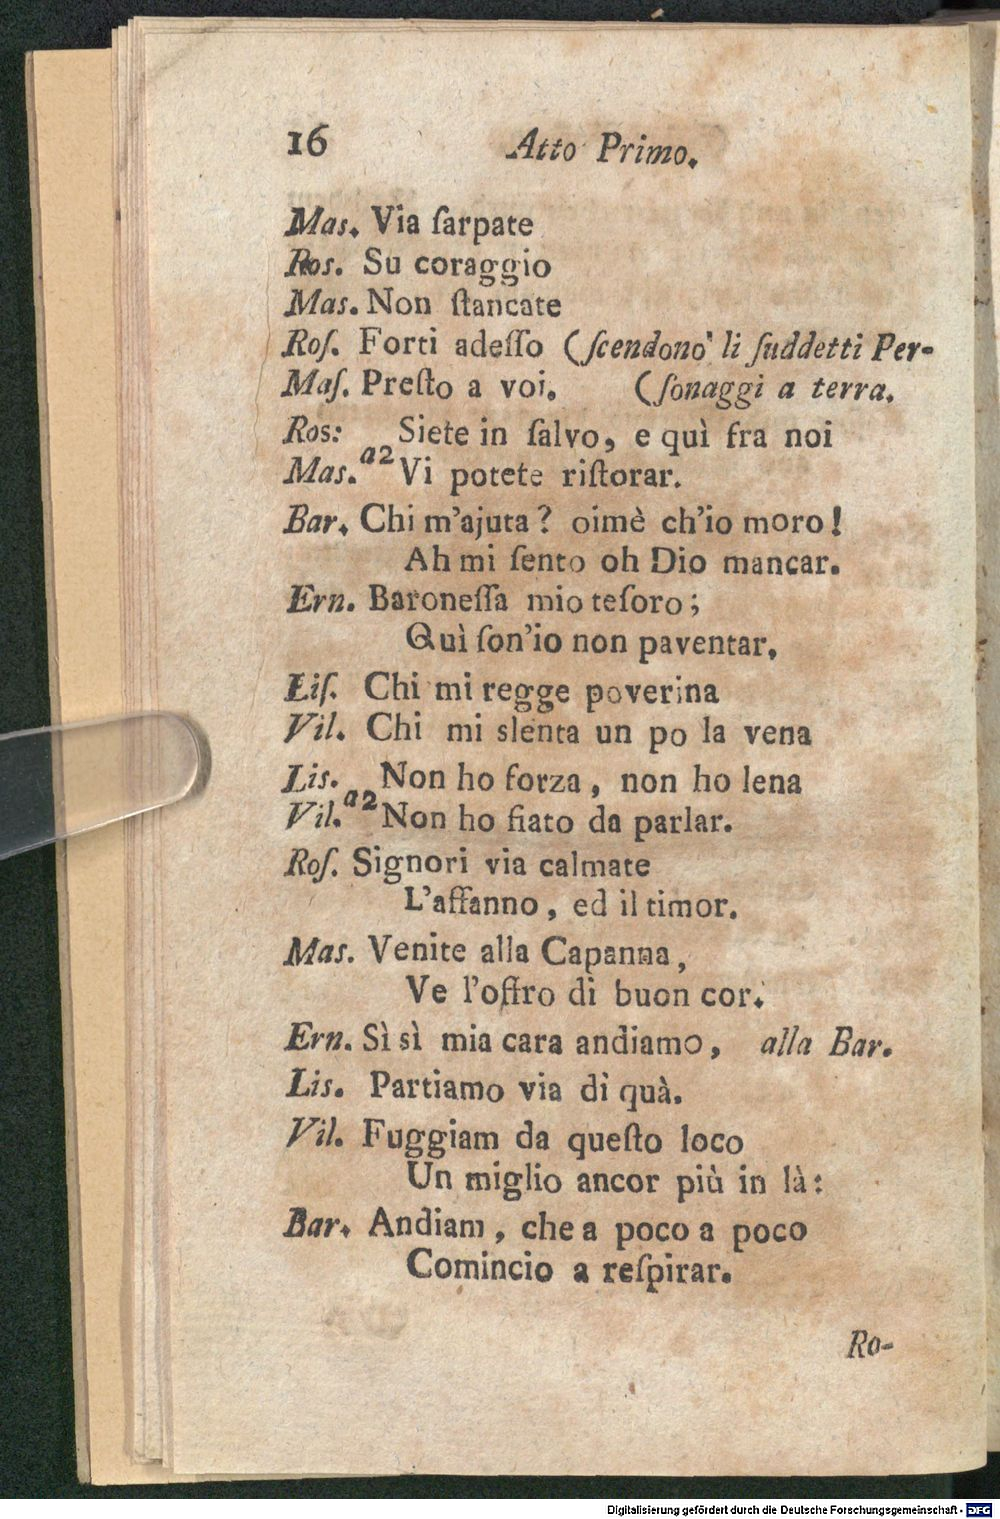 16 Atto Primo.
Mas. Via ſarpate
Ros. Su coraggio
Mas. Non ſtancate
Roſ. Forti adeſſo (ſcendono li ſuddetti Per-
Maſ. Preſto a voi. (ſonaggi a terra.
Ros: Siete in ſalvo, e quì fra noi
a2
Mas. Vi potete riſtorar.
Bar. Chi m'ajuta? oimè ch'io moro!
Ah mi ſento oh Dio mancar.
Ern. Baroneſſa mio teſoro;
Quì ſon'io non paventar,
Liſ. Chi mi regge poverina
Vil. Chi mi slenta un po la vena
Lis. Non ho forza, non ho lena
a2
Vil. Non ho fiato da parlar.
Roſ. Signori via calmate
L'affanno, ed il timor.
Mas. Venite alla Capanna,
Ve l'offro di buon cor.
Ern. Sì sì mia cara andiamo, alla Bar.
Lis. Partiamo via di quà.
Vil. Fuggiam da queſto loco
Un miglio ancor più in là:
Bar. Andiam, che a poco a poco
Comincio a reſpirar.
Ro-
Digitalisierung gefördert durch die Deutsche Forschungsgemeinschaft - DFG